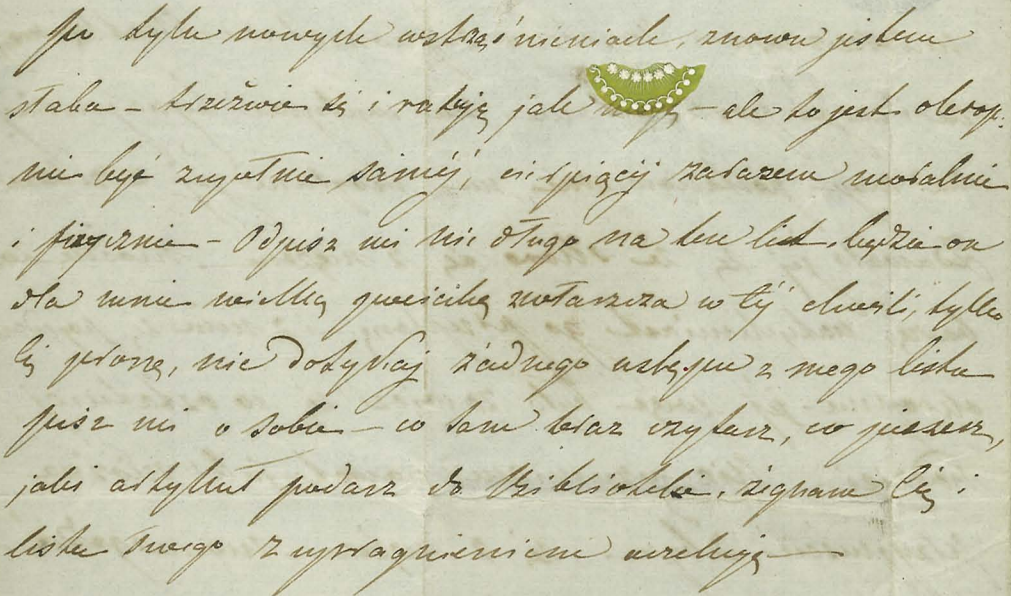 po tylu nowych wstrząśnieniach, znowu jestem
słaba – trzeźwie się i ratuję jak – ale to jest okrop:
nie być zupełnie saméj, cierpiącej zarazem moralnie
i fizycznie – Odpisz mi nie długo na ten list, będzie on
dla mnie wielką pociechą zwłaszcza w téj chwili, tylko
Cię proszę, nie dotykaj żadnego ustępu z mego listu
pisz mi o sobie – co tam teraz czytasz, co piszesz,
jaki artykuł podasz do Biblioteki, żegnam Cię i
listu Twego z upragnieniem oczekuję —